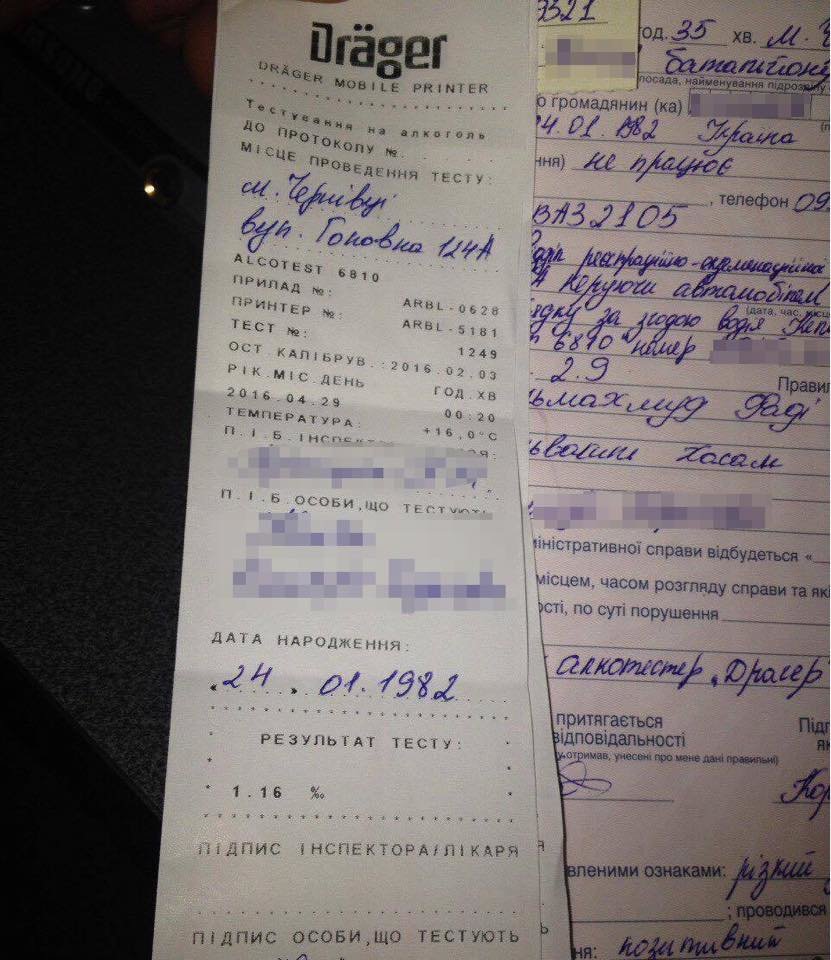 Dräger
DRÄGER MOBILE PRINTER
Тестування на алкоголь
ДО ПРОТОКОЛУ №.
МІСЦЕ ПРОВЕДЕННЯ ТЕСТУ:
м. Чернівці
вул. Головна 124А
ALCOTEST 6810
ПРИЛАД №: ARBL-0628
ПРИНТЕР №: ARBL-5181
ТЕСТ №: 1249
ОСТ.КАЛІБРУВ.:2016.02.03
РІК.МІС.ДЕНЬ ГОД.ХВ
2016.04.29 00:20
ТЕМПЕРАТУРА: +16,0°C
П.І.Б.ІНСПЕКТ
П.І.Б.ОСОБИ,ЩО ТЕСТУЮТЬ
ДАТА НАРОДЖЕННЯ:
«24» 01.1982
РЕЗУЛЬТАТ ТЕСТУ:
1.16 ‰
ПІДПИС ІНСПЕКТОРА/ЛІКАРЯ
ПІДПИС ОСОБИ,ЩО ТЕСТУЮТЬ
3321
год. 35 хв. м. Ч
посада, найменування підрозділу
о громадянин (ка)
24.01.1982 Україна
ння) не працює
, телефон 09
ВАЗ 2105
реєстраційно-екзаменаційної
керуючи автомобілем
(дата, час, місц
за згодою водія
6810 номер
2.9 Правил
Фаді
Хасам
міністративної справи відбудеться «
місцем, часом розгляду справи та які
ості, по суті порушення
алкотестер „Драгер"
притягається Підп
відповідальності як
у отримав, унесені про мене дані правильні)
Кор
вленими ознаками: різкий
; проводився
ня: позитивний